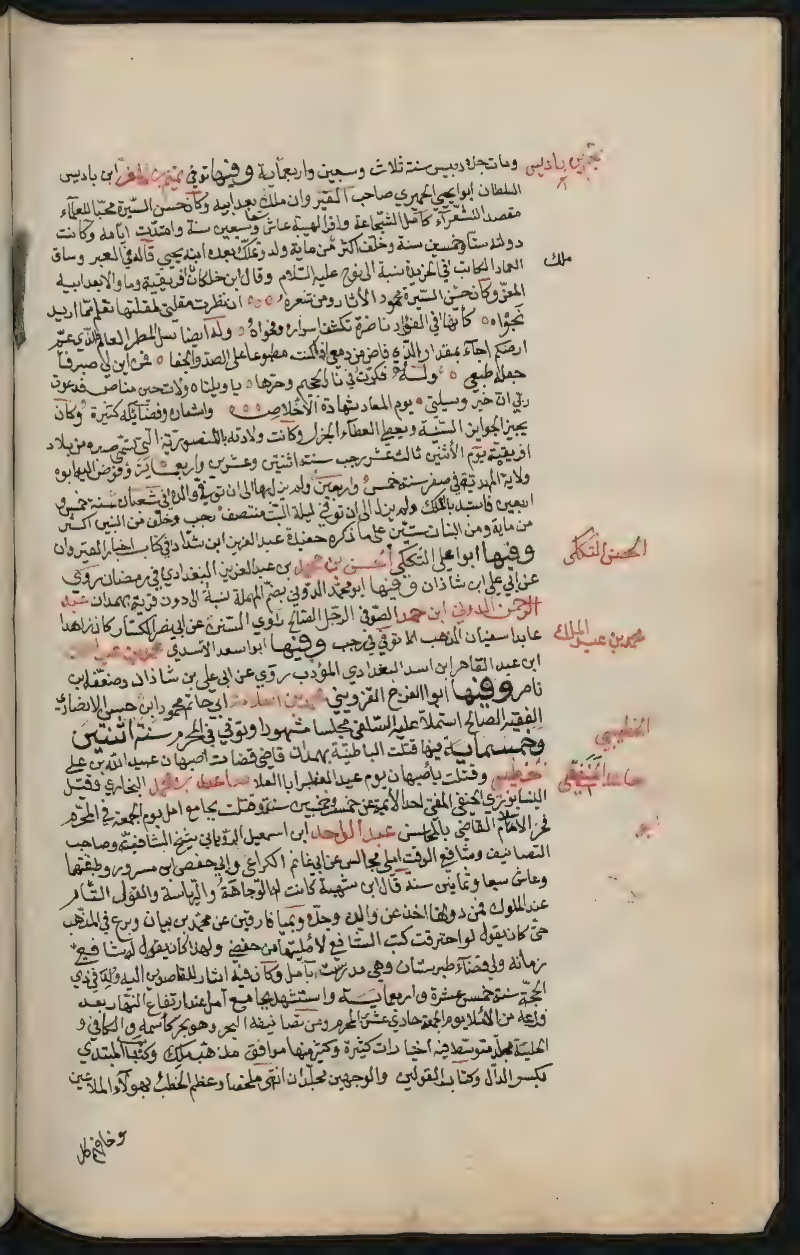 تميم بن باديس
ومات جده دبيس سنة ثلاث وسبعين واربعماية وفيها توفي تميم بن المعز ابن باديس
السلطان ابو يحيى الحميري صاحب القيروان ملك بعد ابيه وكان حسن السيرة محبا للعلماء
مقصدا للشعرآء كامل الشجاعة وافر الهيبة عاش تسعا وسبعين سنة وامتدت ايامه وكانت
دولته ستا وخمسين سنة وخلف اكثر من ماية ولد وتملك بعده ابنه يحيى قاله في العبر وساق
ملك
العماد الكاتب في الخريدة نسبة الى نوح عليه السلام وقال ابن خلكان افريقية وما والاها بعد ابيه
المعز وكان حسن السيرة محمود الآثار ومن شعره ان نظرت مقلتي لمقلتها تعلم مما اريد
نجواه كانها في الفؤاد ناضرة تكشف اسراره وفحواه وله ايضا سل المطر العام الذي عم
ارضكم اجآء بمقدار الذي فاض من دمعي اذا كنت مطبوعا على الصد والجفا فمن اين لي صبر فا
جعله طبعي وله فكرت في نار الجحيم وحرها يا ويلتاه ولات حين مناص فدعوت
ربي ان خير وسيلتي يوم المعاد شهادة الاخلاص واشعاره وفضايله كثيرة وكان
يجيز الجوايز السنية ويعطي العطاء الجزل وكانت ولادته بالمنصورية التي تسمى صبره من بلاد
افريقية يوم الاثنين ثالث عشر رجب سنة اثنتين وعشرين واربعماية وفوض اليه ابوه
ولاية المهدية في صفر سنة خمس واربعين ولم يزل بها الى ان توفي والده في شعبان سنة خمس و
اربعين فاستبد بالملك ولم يزل الى ان توفي ليلة السبت منتصف رجب وخلف من البنين اكثر
من ماية ومن البنات ستين على ما ذكره حفيده عبد العزيز ابن شداد في كتاب اخبار القيروان
الحسن التككي
وفيها ابو علي التككي الحسن بن محمد بن عبد العزيز البغدادي في رمضان روى
عن ابي علي ابن شاذان وفيها ابو محمد الدوني بضم المهملة نسبة الى دون قرية بهمدان عبد
الرحمن الدوني ابن حمد الصوفي الرجل الصالح راوي السنن عن ابي نصر الكسار كان زاهدا
محمد بن عبد الملك
عابدا سفيان المذهب توفي في رجب وفيها ابو اسعد الاسدي محمد بن عبد الملك
ابن عبد القاهر ابن اسد البغدادي المؤدب روى عن ابي علي بن شاذان وضعفه ابن
ناصر وفيها ابو الفرج القزويني محمد بن العلامة ابي حاتم محمود ابن حسن الانصاري
الفقيه الصالح استملا عليه السلفي مجلسا مشهورا وتوفي في المحرم سنة اثنتين
الخطيبي
وخمسماية فيها قتلت الباطنية بهمدان قاضي قضات اصبهان عبيد الله بن علي
صاعد الحنفي
الخطيبي وقتلت باصبهان يوم عيد الفطر ابا العلا صاعد بن محمد البخاري وقتل
النيسابوري الحنفي المفتي احد الايمة عن خمس وخمسين سنة وقتلت بجامع امل يوم الجمعة في المحرم
فخر الاسلام القاضي ابا المحاسن عبد الواحد ابن اسمعيل الروياني شيخ الشافعية وصاحب
التصانيف وشافعي الوقت املى مجالس عن ابي غانم الكراعي وابي حفص ابن مسرور وطبقتها
وعاش سبعا وثمانين سنة قال ابن شهبة كانت له الوجاهة والرياسة والقبول التام
عند الملوك فمن دونها اخذ عن والده وجده وبميافارقين عن محمد بن بيان وبرع في المذهب
حتى كان يقول لو احترقت كتب الشافعي لامليتها من حفظي ولهذا كان يقول له شافعي
زمانه ولي قضاء طبرستان وبنى مدرسة بآمل وكان فيه ايثار للقاصدين اليه ولد في ذي
الحجة سنة خمس عشرة واربعماية واستشهد بجامع آمل عند ارتفاع النهار بعد
فراغه من الاملا يوم الجمعة حادي عشر المحرم ومن تصانيفه البحر وهو بحر كاسمه والكافي و
الحلية مجلد متوسط فيه اختيارات كثيرة وكثير منها موافق مذهب ملك وكتاب المبتدي
بكسر الدال وكتاب القولين والوجهين مجلدان انتهى ملخصا وعظم الخطب بهولاء الملاعين
وخافهم كل